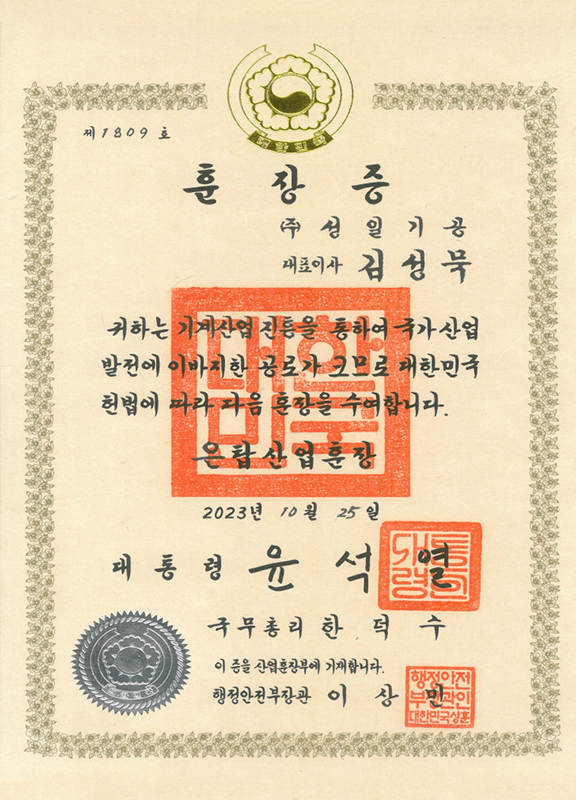 대한민국
제 1809 호
훈장증
(주) 성일기공
대표이사 김성묵
귀하는 기계산업 진흥을 통하여 국가 산업
발전에 이바지한 공로가 크므로 대한민국
헌법에 따라 다음 훈장을 수여합니다.
은탑산업훈장
2023년 10월 25일
대통령 윤석열
대통령인
국무총리 한덕수
이 증을 산업훈장부에 기재합니다.
행정안전부장관 이상민
행정안전
부장관인
대한민국상훈